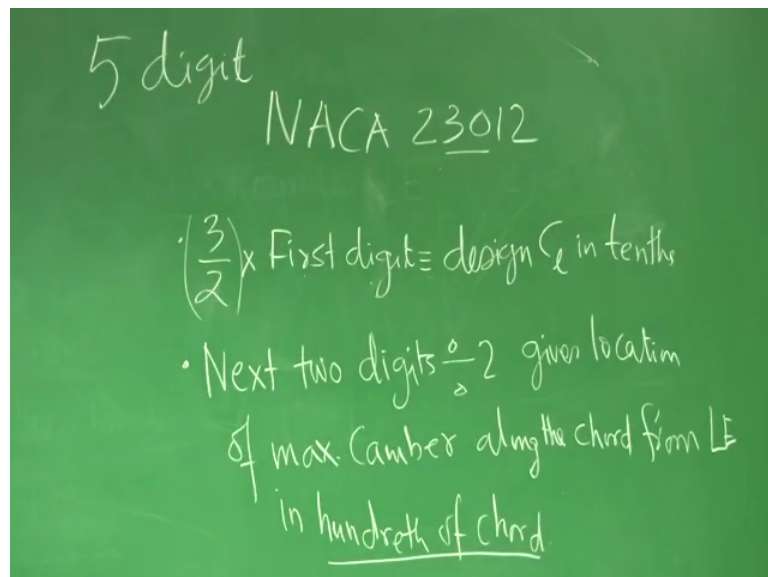 5 digit
NACA 23012
· (3/2) x First digit ≡ design Cl in tenths
· Next two digits ÷ 2 gives location
of max. Camber along the chord from LE
in hundreth of chord